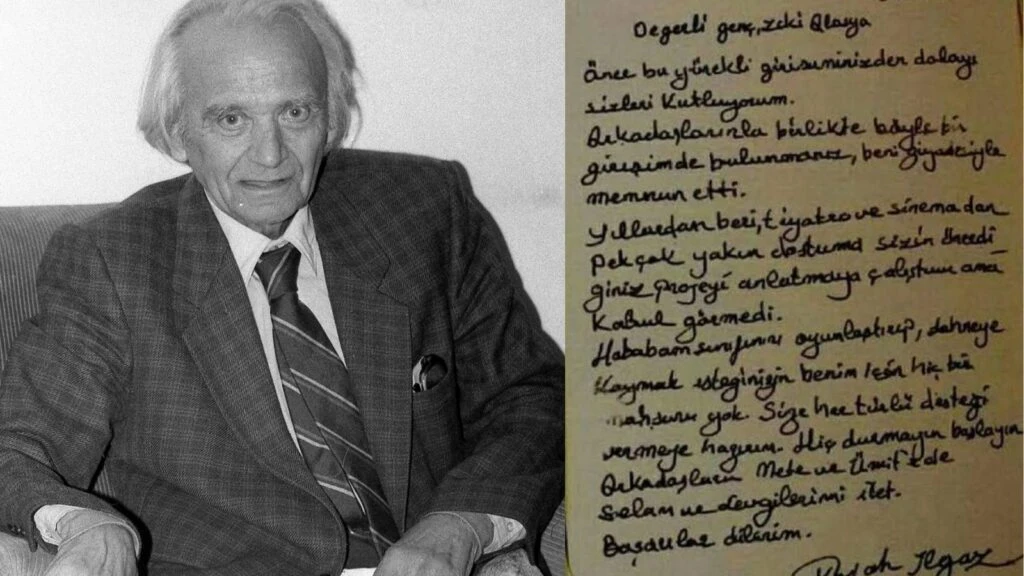 Değerli genç, Zeki Alasya
Önce bu yürekli girişiminizden dolayı
sizleri Kutluyorum.
Arkadaşlarınla birlikte böyle bir
girişimde bulunmanız, beni ziyadesiyle
memnun etti.
Yıllardan beri, tiyatro ve sinemadan
pekçok yakın dostuma sizin önerdi
ğiniz projeyi anlatmaya çalıştım ama
Kabul görmedi.
Hababam sınıfını oyunlaştırıp, sahneye
Koymak isteğinizin benim için hiç bir
mahsuru yok. Size her türlü desteği
vermeye hazırım. Hiç durmayın başlayın
Arkadaşların Mete ve Ümit'e de
selam ve sevgilerimi ilet.
Başarılar dilerim.
Rıfat Ilgaz